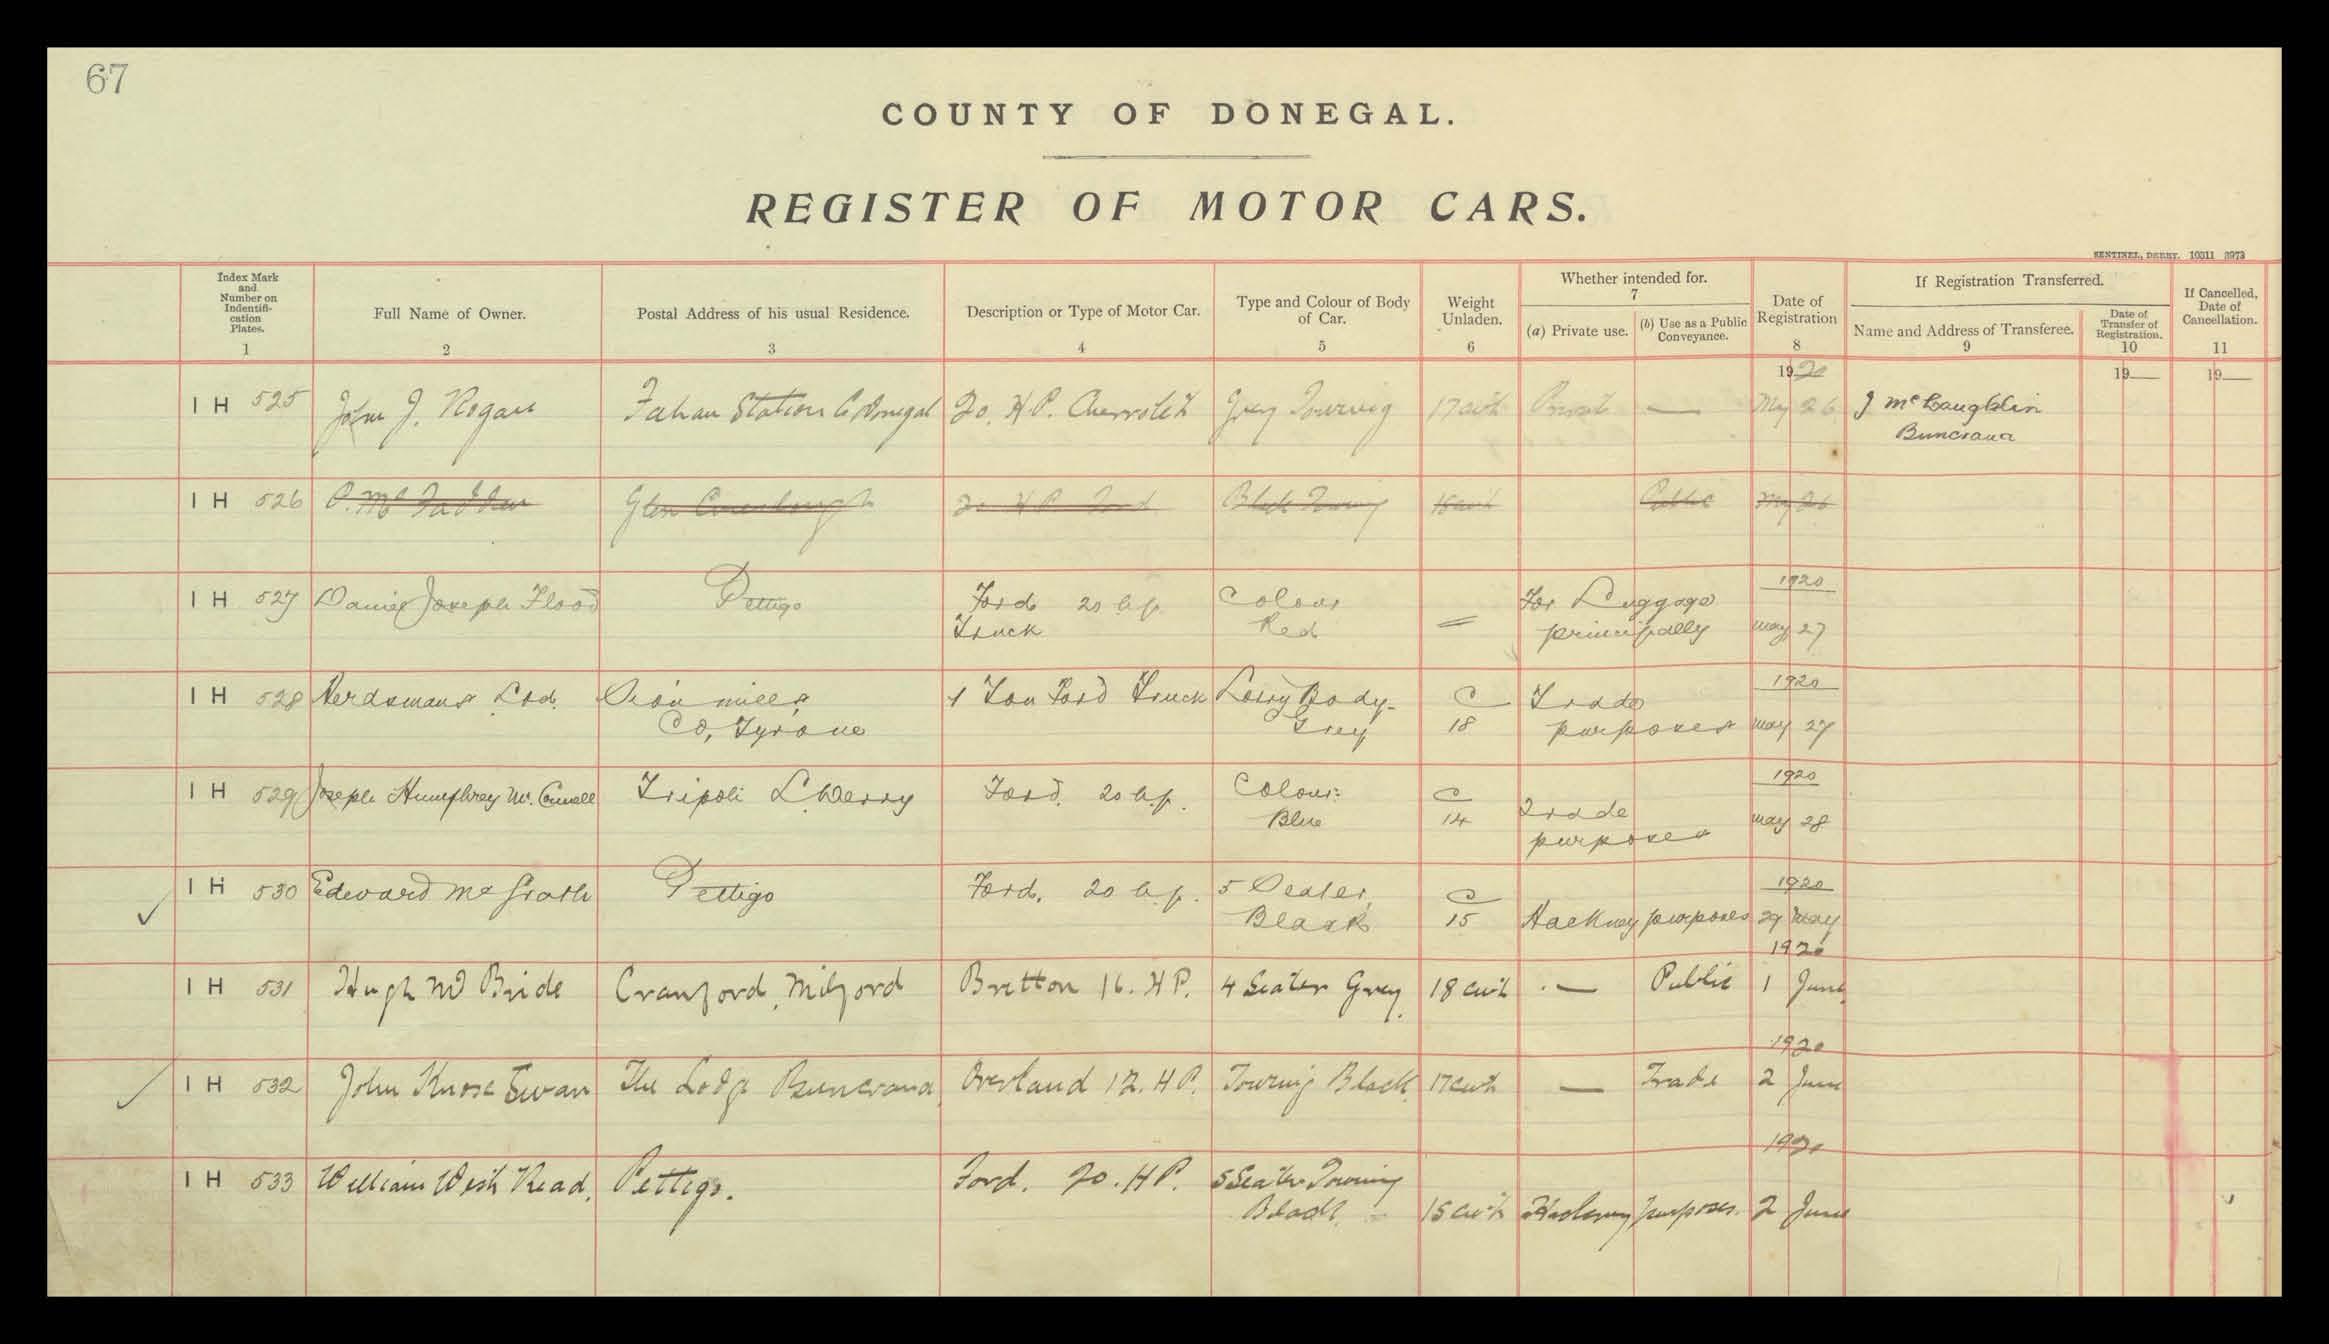 67
COUNTY OF DONEGAL.
REGISTER OF MOTOR CARS.
SENTINEL, DERRY. 10311 3973
Index Mark and Number on Indentifi- cation Plates. 1
Full Name of Owner. 2
Postal Address of his usual Residence. 3
Description or Type of Motor Car. 4
Type and Colour of Body of Car. 5
Weight Unladen. 6
Whether intended for. 7
(a) Private use.
(b) Use as a Public Conveyance.
Date of Registration 8
If Registration Transferred.
Name and Address of Transferee. 9
Date of Transfer of Registration. 10
If Cancelled, Date of Cancellation. 11
1920 19 19
I H 525 John J. Hogan Fahan Station Co Donegal 20. H.P. Chevrolet Grey Touring 17 cwt Private — May 26 J McLaughlin
Buncrana
I H 526 P. McFadden Glen 20 H.P. Ford Black Touring 15 cwt Public May 26
I H 527 Daniel Joseph Flood Pettigo Ford 20 h.p. Colour = For Luggage 1920
Truck Red principally May 27
I H 528 Herdsmans Ltd. Sion mills, 1 Ton Ford Truck Lorry Body- C Trade 1920
Co, Tyrone Grey 18 purposes May 27
I H 529 Joseph Humphrey McConnell Tripoli L'Derry Ford. 20 h.p. Colour: C Trade 1920
Blue 14 purposes May 28
I H 530 Edward McGrath Pettigo Ford. 20 h.p. 5 Seater, C 1920
Black 15 Hackney purposes 29 May
1920
I H 531 Hugh McBride Cranford, Milford Britton 16. H.P. 4 Seater Grey 18 cwt — Public 1 June
1920
I H 532 John Knox Swan The Lodge Buncrana Overland 12. H.P. Touring Black 17 cwt — Trade 2 June
1920
I H 533 William West Read, Pettigo. Ford. 20. H.P. 5 Seater Touring
Black 15 cwt Hackney purposes. 2 June